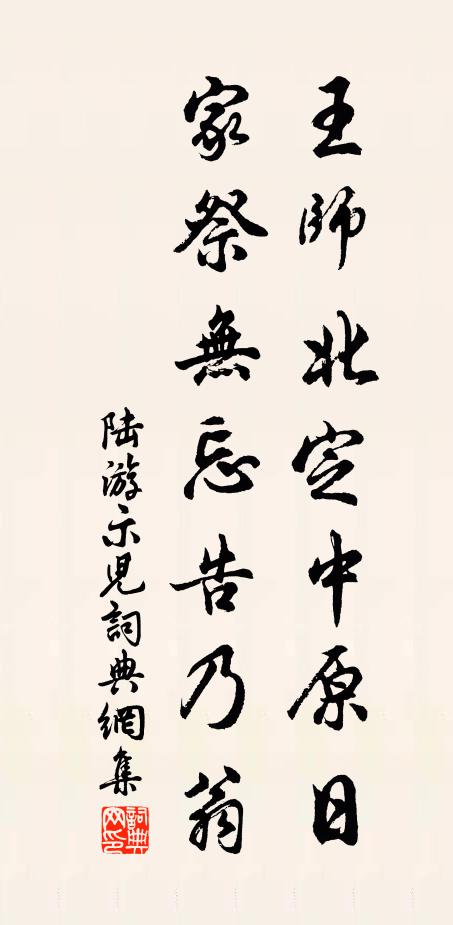 王師北定中原日
家祭無忘告乃翁
陆游示児詞典網集
詞典网印